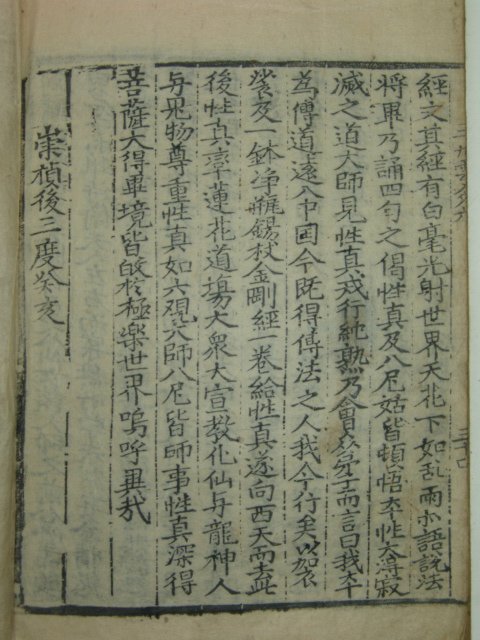 經文其經有白毫光射世界天花下如乱雨亦語說法
將畢乃誦四句之偈性真及八尼姑皆頓悟本性大得寂
滅之道大師見性真戒行純熟乃會众弟子而言曰我本
為傳道遠入中国今既得傳法之人我今行矣以袈衣
袈友一鉢净瓶錫杖金剛經一卷給性真遂向西天而去此
後性真率蓮花道場大衆大宣教化仙与龍神人
与鬼物尊重性真如六观大師八尼皆師事性真深得
菩薩大得畢境皆皈於極樂世界嗚呼異哉
崇禎後三度癸亥